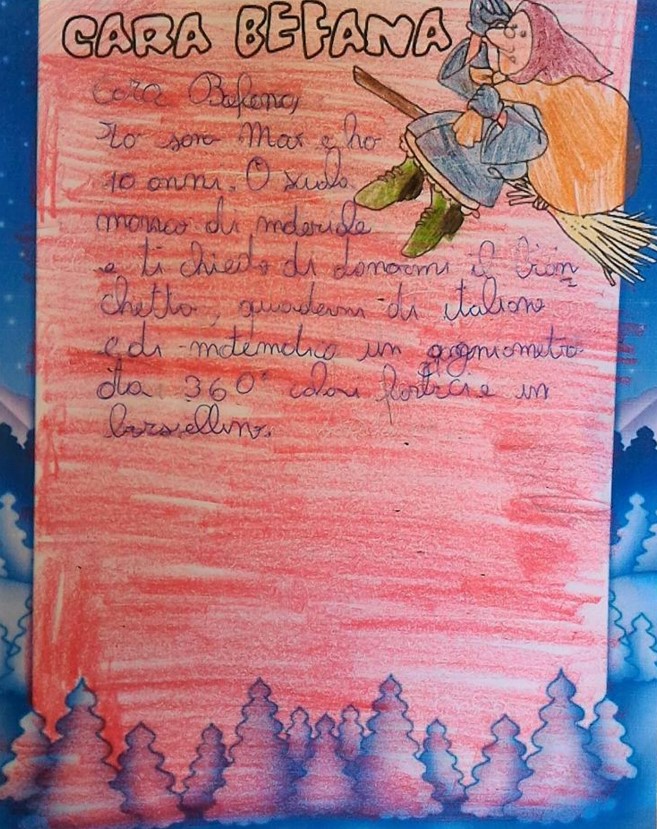 CARA BEFANA
Cara Befana,
Io sono Max e ho
10 anni. A scuola
manca di materiale
e ti chiedo di donarmi il bian
chetto, quaderni di italiano
e di matematica un gogniometro
da 360° colori forbici e un
borsellino.